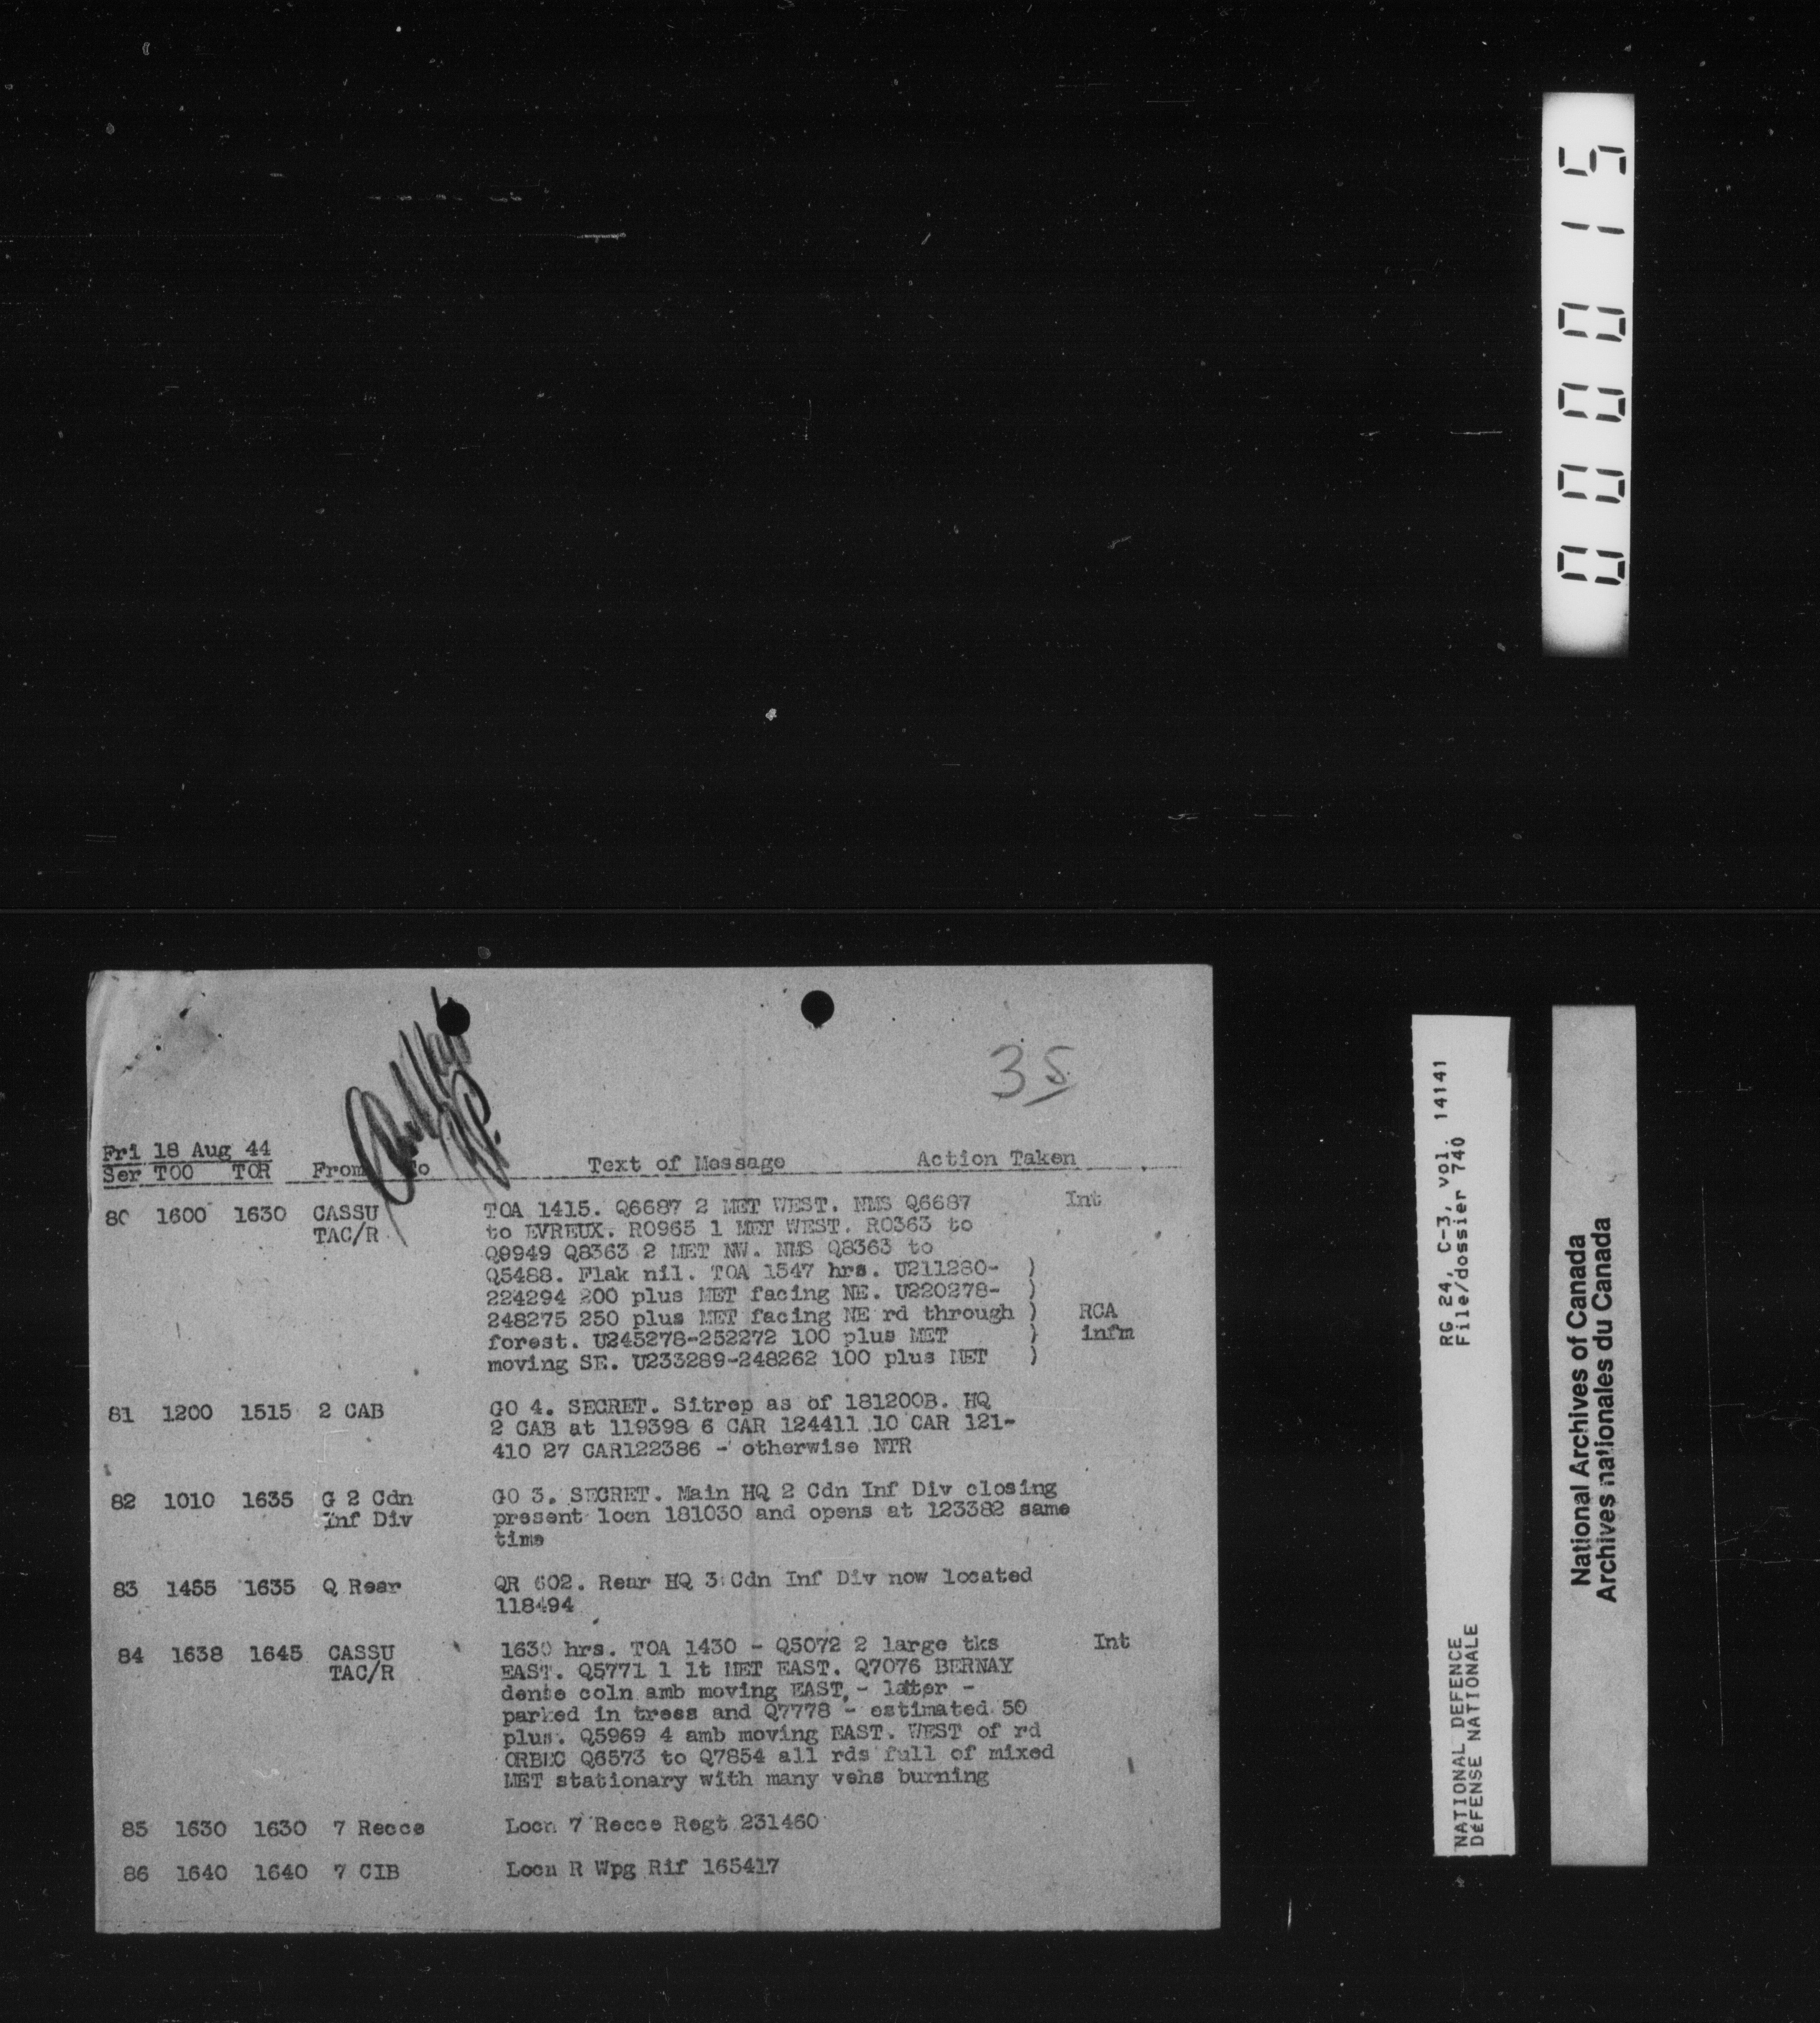 000015
35
Fri 18 Aug 44
Ser TOO TOR From To Text of Message Action Taken
80 1600 1630 CASSU TOA 1415. Q6687 2 MET WEST. NMS Q6687 Int
TAC/R to EVREUX. R0965 1 MET WEST. R0363 to
Q9949 Q8363 2 MET NW. NMS Q8363 to
Q5488. Flak nil. TOA 1547 hrs. U211280- )
224294 200 plus MET facing NE. U220278- )
248275 250 plus MET facing NE rd through ) RCA
forest. U245278-252272 100 plus MET ) infm
moving SE. U233289-248262 100 plus MET )
81 1200 1515 2 CAB GO 4. SECRET. Sitrep as of 181200B. HQ
2 CAB at 119398 6 CAR 124411 10 CAR 121-
410 27 CAR122386 - otherwise NTR
82 1010 1635 G 2 Cdn GO 3. SECRET. Main HQ 2 Cdn Inf Div closing
Inf Div present locn 181030 and opens at 123382 same
time
83 1455 1635 Q Rear QR 602. Rear HQ 3 Cdn Inf Div now located
118494
84 1638 1645 CASSU 1630 hrs. TOA 1430 - Q5072 2 large tks Int
TAC/R EAST. Q5771 1 lt MET EAST. Q7076 BERNAY
dense coln amb moving EAST, - latter -
parked in trees and Q7778 - estimated 50
plus. Q5969 4 amb moving EAST. WEST of rd
ORBEC Q6573 to Q7854 all rds full of mixed
MET stationary with many vehs burning
85 1630 1630 7 Recce Locn 7 Recce Regt 231460
86 1640 1640 7 CIB Locn R Wpg Rif 165417
RG 24, C-3, vol. 14141
File/dossier 740
NATIONAL DEFENCE
DéFENSE NATIONALE
National Archives of Canada
Archives nationales du Canada